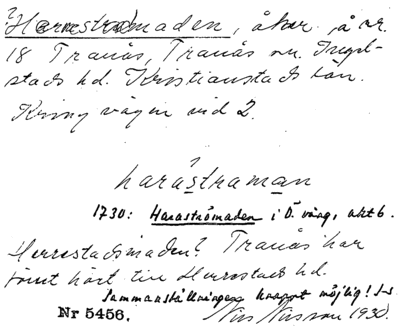 Harrestadmaden, åker, å nr.
18 Tranås, Tranås sn. Ingel-
stads hd. Kristianstads län.
Kring vägen vid 2.
harástraman
1730: Haraströmaden i Ö. vång, akt 6.
Herrestadsmaden? Tranås har
förut hört till Herrestads hd.
Sammanställningen knappt möjlig! I-s
Nr 5456. Nils Nilsson 1930.